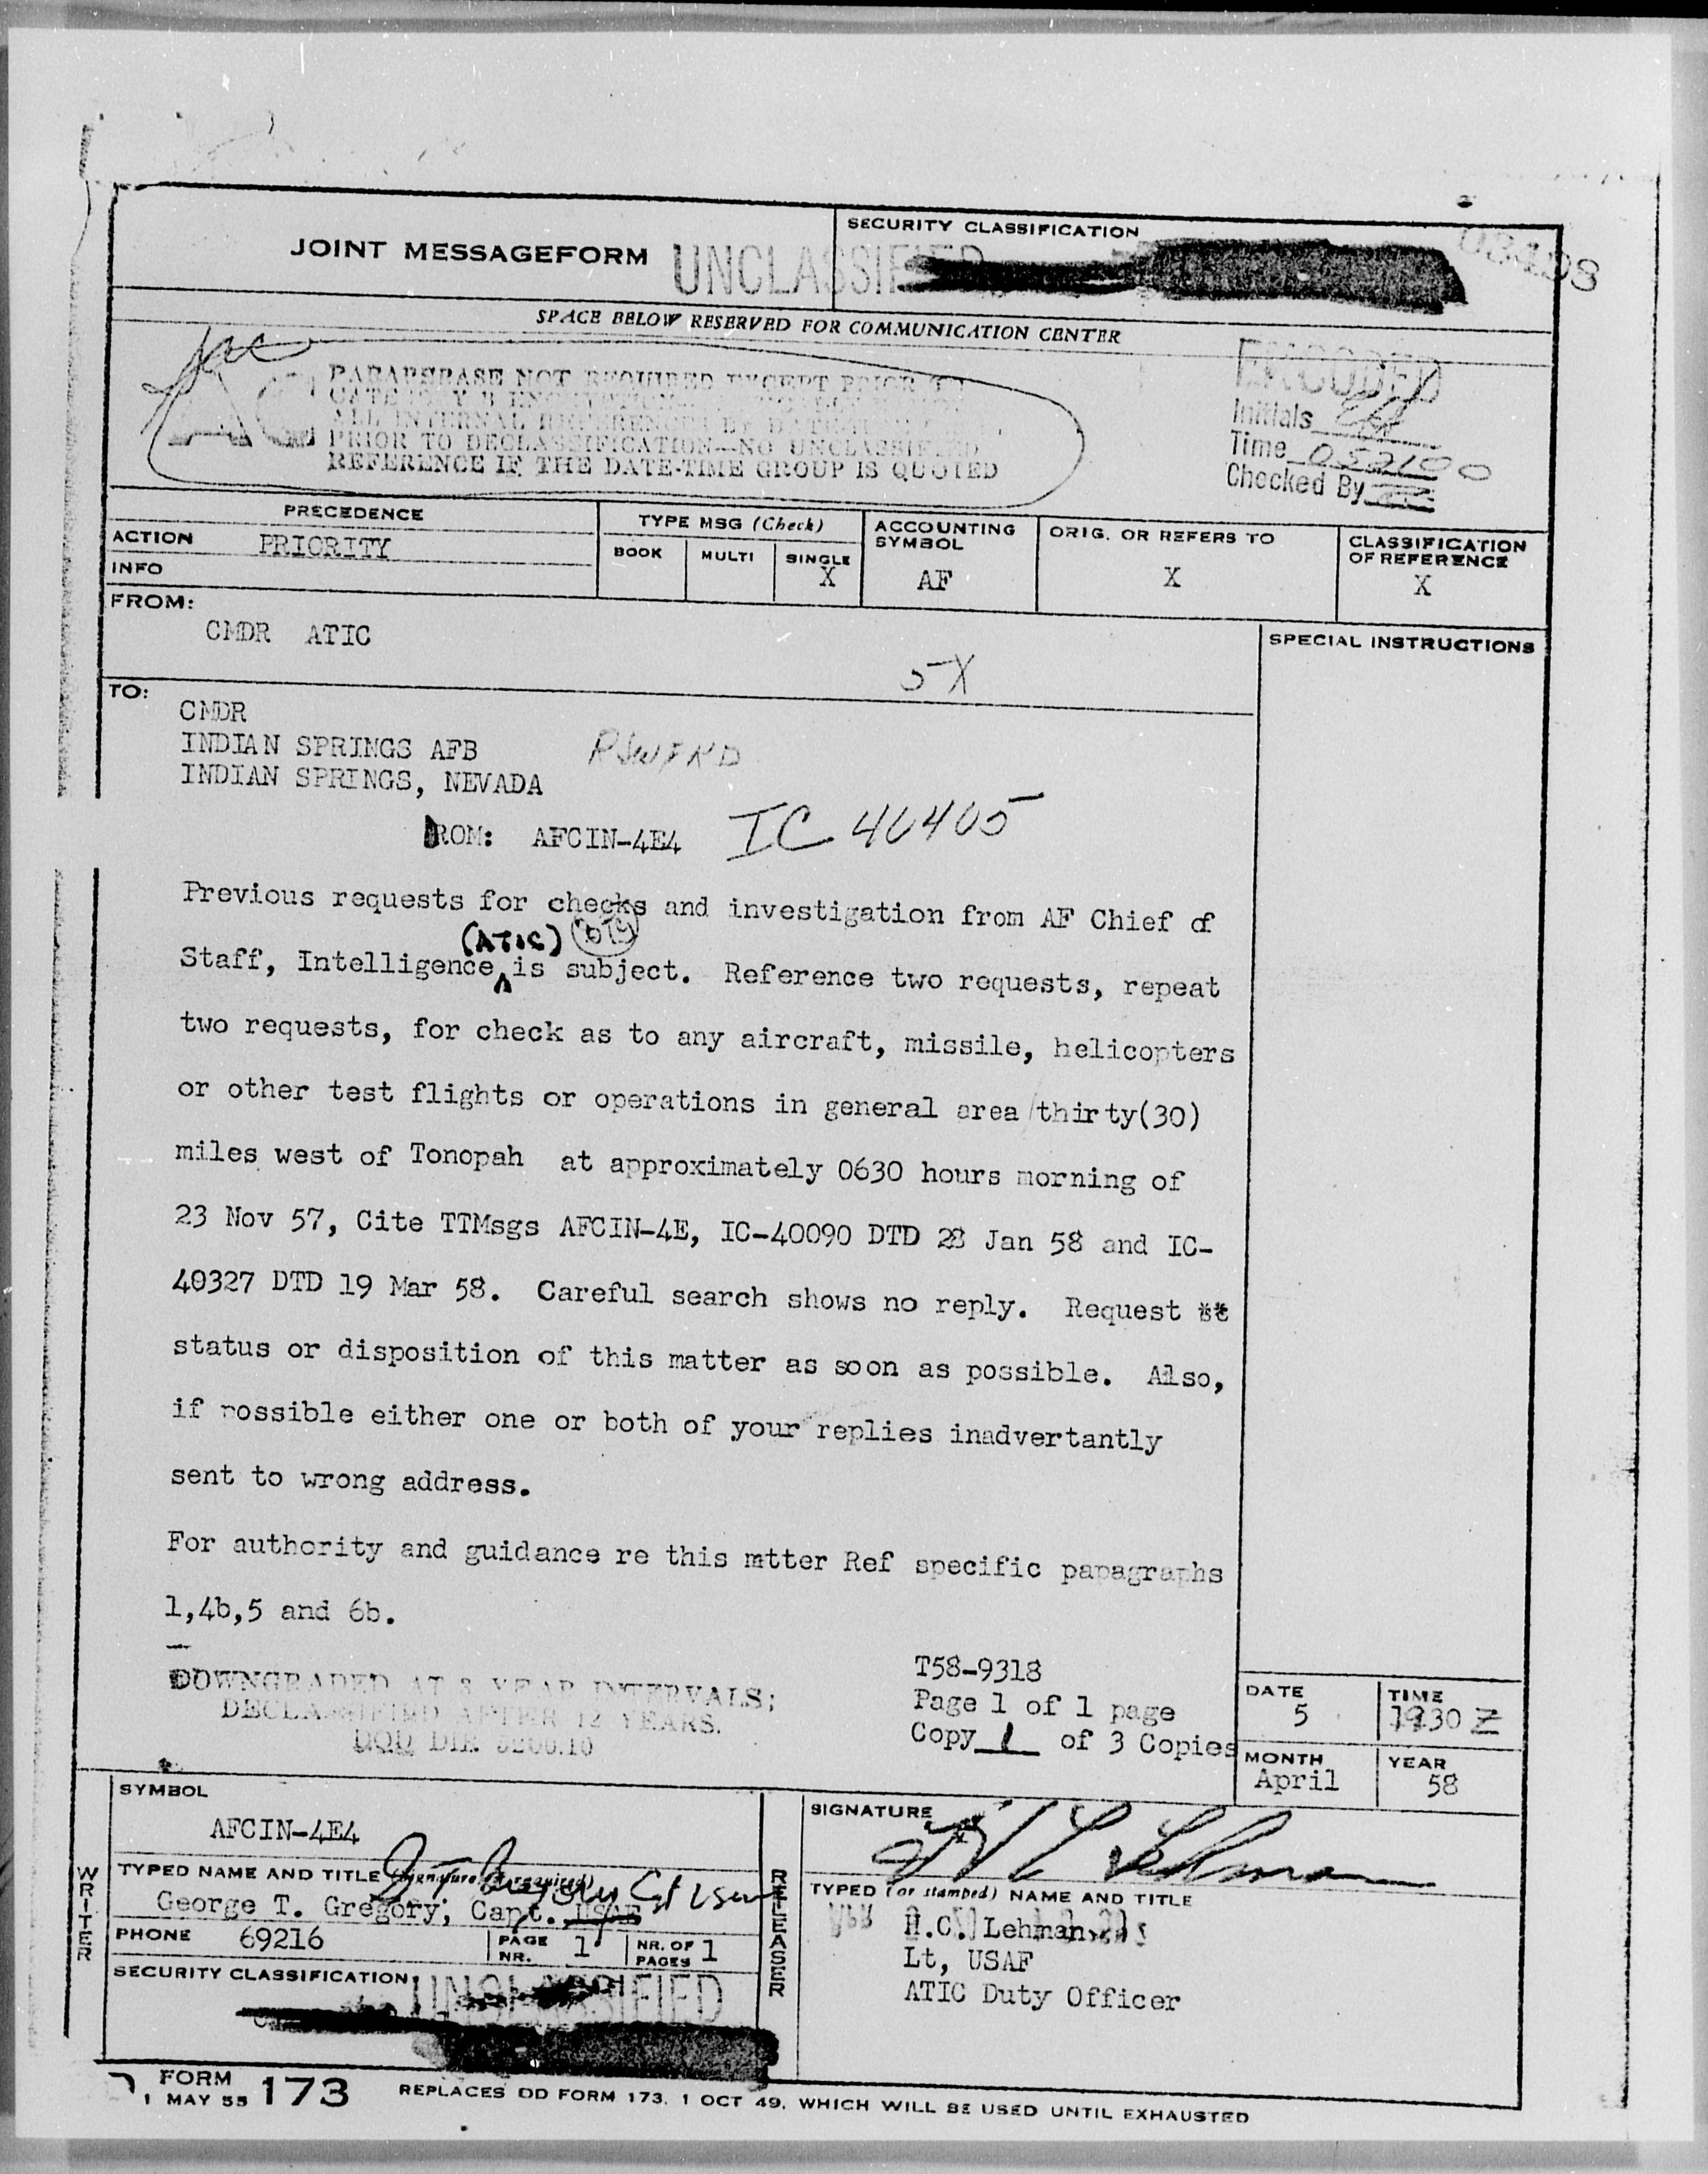 JOINT MESSAGEFORM
UNCLASSIFIED
SECURITY CLASSIFICATION
SPACE BELOW RESERVED FOR COMMUNICATION CENTER
PARAPHRASE NOT REQUIRED EXCEPT PRIOR TO
ALL INTERNAL REFERENCES BY
PRIOR TO DECLASSIFICATION—NO UNCLASSIFIED
REFERENCE IF THE DATE-TIME GROUP IS QUOTED
ENCODED
Initials
Time 052100
Checked By
PRECEDENCE
TYPE MSG (Check)
ACCOUNTING SYMBOL
ORIG. OR REFERS TO
CLASSIFICATION OF REFERENCE
ACTION PRIORITY
BOOK MULTI SINGLE
INFO
X AF X X
FROM:
CMDR ATIC
SPECIAL INSTRUCTIONS
5X
TO:
CMDR
INDIAN SPRINGS AFB
INDIAN SPRINGS, NEVADA
ROM: AFCIN-4E4 IC 40405
Previous requests for checks and investigation from AF Chief of
(ATIC)
Staff, Intelligence is subject. Reference two requests, repeat
two requests, for check as to any aircraft, missile, helicopters
or other test flights or operations in general area thirty(30)
miles west of Tonopah at approximately 0630 hours morning of
23 Nov 57, Cite TTMsgs AFCIN-4E, IC-40090 DTD 28 Jan 58 and IC-
40327 DTD 19 Mar 58. Careful search shows no reply. Request
status or disposition of this matter as soon as possible. Also,
if possible either one or both of your replies inadvertantly
sent to wrong address.
For authority and guidance re this mtter Ref specific papagraphs
1,4b,5 and 6b.
DOWNGRADED AT 3 YEAR INTERVALS;
DECLASSIFIED AFTER 12 YEARS.
DOD DIR 5200.10
T58-9318
Page 1 of 1 page
Copy 1 of 3 Copies
DATE 5
TIME 1930 Z
MONTH April
YEAR 58
SYMBOL
AFCIN-4E4
WRITER
TYPED NAME AND TITLE (Signature, if required)
George T. Gregory, Capt. USAF
PHONE 69216
PAGE NR. 1
NR. OF PAGES 1
SECURITY CLASSIFICATION
UNCLASSIFIED
RELEASER
SIGNATURE
H C Lehman
TYPED (or stamped) NAME AND TITLE
H.C. Lehman
Lt, USAF
ATIC Duty Officer
FORM 173
1 MAY 55
REPLACES DD FORM 173, 1 OCT 49, WHICH WILL BE USED UNTIL EXHAUSTED